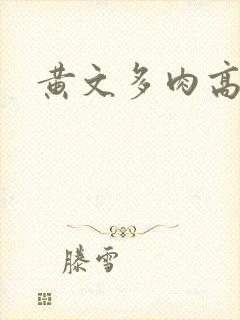 黄文多肉高
滕雪